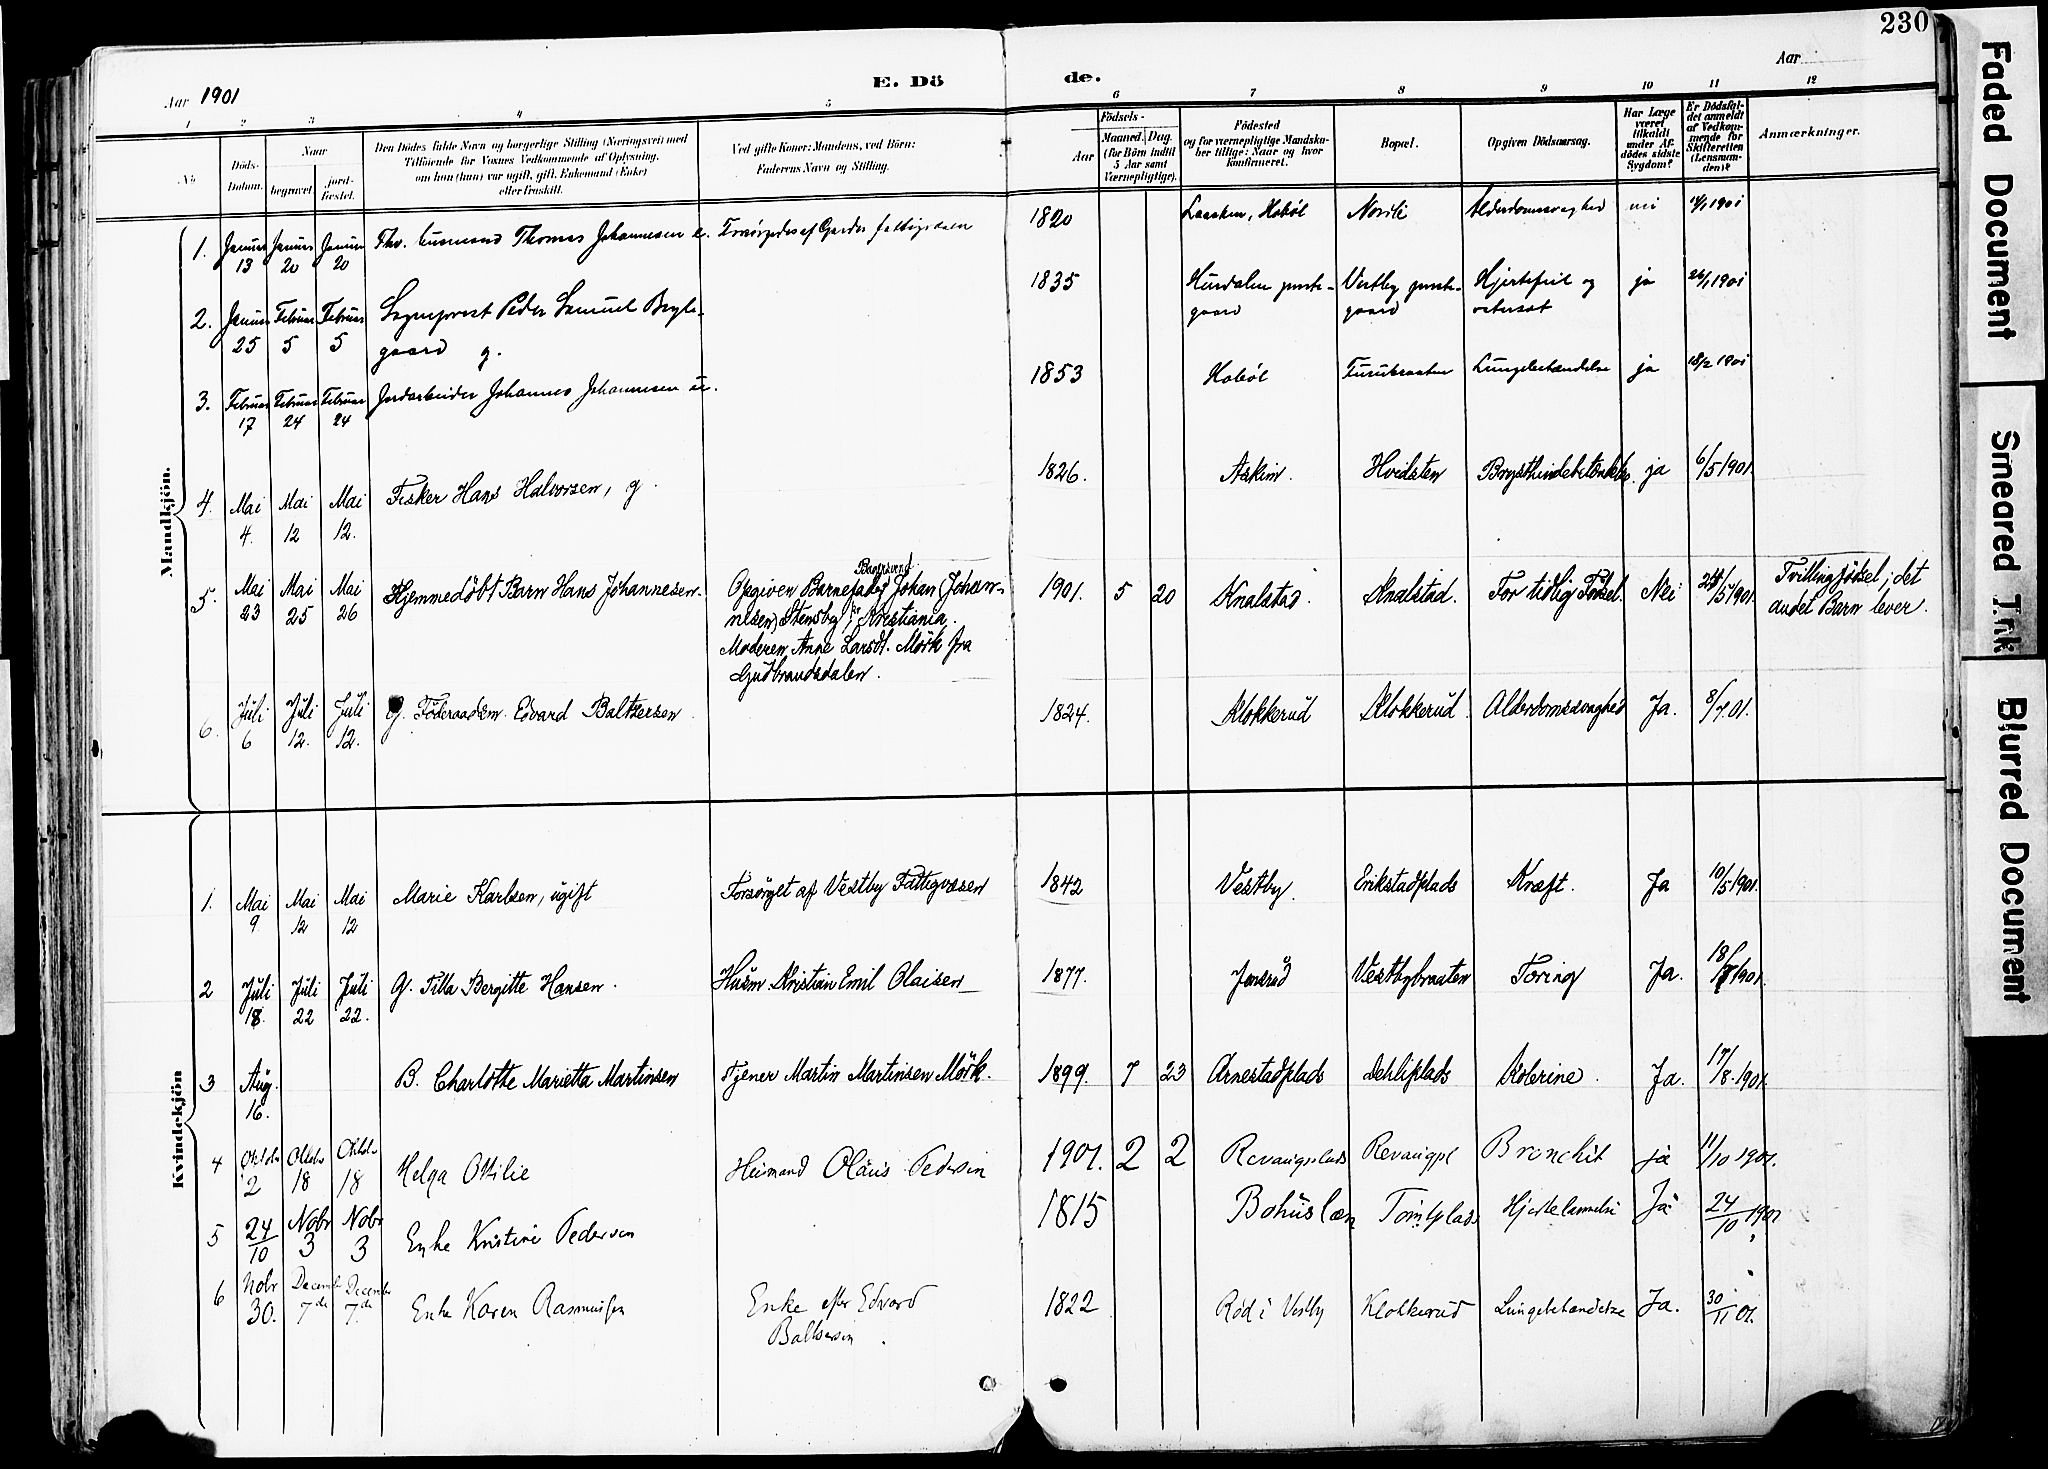 230
Aar 1901
E. Dö
de.
Aar
1 2 3 4 5 6 7 8 9 10 11 12
No
Döds-Datum.
Naar
begravet
jord-fæstet.
Den Dödes fulde Navn og borgerlige Stilling (Næringsvei) med
Tilföiende for Voxnes Vedkommende af Oplysning,
om han (hun) var ugift, gift, Enkemand (Enke)
eller fraskilt.
Ved gifte Koner: Mandens, ved Börn:
Faderens Navn og Stilling.
Födsels-
Aar
Maaned. Dag.
(for Börn indtil
5 Aar samt
Værnepligtige).
Födested
og for værnepligtige Mandska-
ber tillige: Naar og hvor
konfirmeret.
Bopæl.
Opgiven Dödsaarsag.
Har Læge
været
tilkaldt
under Af-
dödes sidste
Sygdom?
Er Dödsfal-
det anmeldt
af Vedkom-
mende for
Skifteretten
(Lensman-
den)?
Anmærkninger.
Mandkjön.
1. Januar 13 Januar 20 Januar 20 Thomas Johannesen Forsörgedes af Gardes fattigvæsen 1820 Hobøl Alderdomssvaghed nei 1901
2. Januar 25 Februar 5 Februar 5 Sogneprest Peder Samuel Bryge- 1835 Hurdalen preste- Vestby preste- Hjertefeil og ja 26/1 1901
gaard g. gaard gaard vatersot
3. Februar 17 Februar 24 Februar 24 Jordarbeider Johannes Johannesen 1853 Hobøl Furubraaten Lungebetændelse ja 18/2 1901
4. Mai 4. Mai 12 Mai 12. Fisker Hans Halvorsen, g. 1826. Askim. Hvidsten ja 6/5 1901.
5. Mai 23 Mai 25 Mai 26 Hjemmedöbt Barn Hans Johannesen. Opgiven Barnefader Johan Johan- 1901. 5 20 Knalstad. Knalstad. For tidlig Födsel. Nei 24/5 1901. Tvillingfödsel; det
nesen Stensby, Kristiania. andet Barn lever.
Moderen, Anne Larsdt. Mörk fra
Gudbrandsdalen.
6. Juli 6 Juli 12. Juli 12. Föderaadsm. Edvard Baltzersen 1824. Klokkerud Klokkerud. Alderdomssvaghed Ja. 8/7.01.
Kvindekjön
1. Mai 9 Mai 12 Mai 12 Marie Karlsen, ugift Forsörget af Vestby Fattigvæsen 1842 Vestby. Erikstadplads Kræft. Ja 10/5 1901.
2 Juli 18. Juli 22 Juli 22. G. Tilla Bergitte Hansen. Husm Kristian Emil Olaisen 1877. Jonsrud Vestbybraaten Tæring Ja. 18/7 1901.
3 Aug. 16. B. Charlotte Marietta Martinsen Tjener Martin Martinsen Mörk. 1899. 7 23 Arnestadplads Dehliplads Kolerine. Ja. 17/8. 1901.
4 Oktober 2 Oktober 18 Oktober 18 Helga Otilie Olaus Pedersen 1901. 2 2 Revaugplads Revaugpl Bronchit ja 11/10 1901.
5 24/10 Nobr 3 Nobr 3 Enke Kristine Pedersen 1815 Bohuslæn Tomtplads Hjertelammelse Ja 24/10 1901
6 Nobr 30. December 7de December 7de Enke Karen Rasmussen Enke efter Edvard 1822 Röd i Vestby Klokkerud Lungebetændelse Ja. 30/11 01.
Baltsersen.
Faded Document
Smeared Ink
Blurred Document